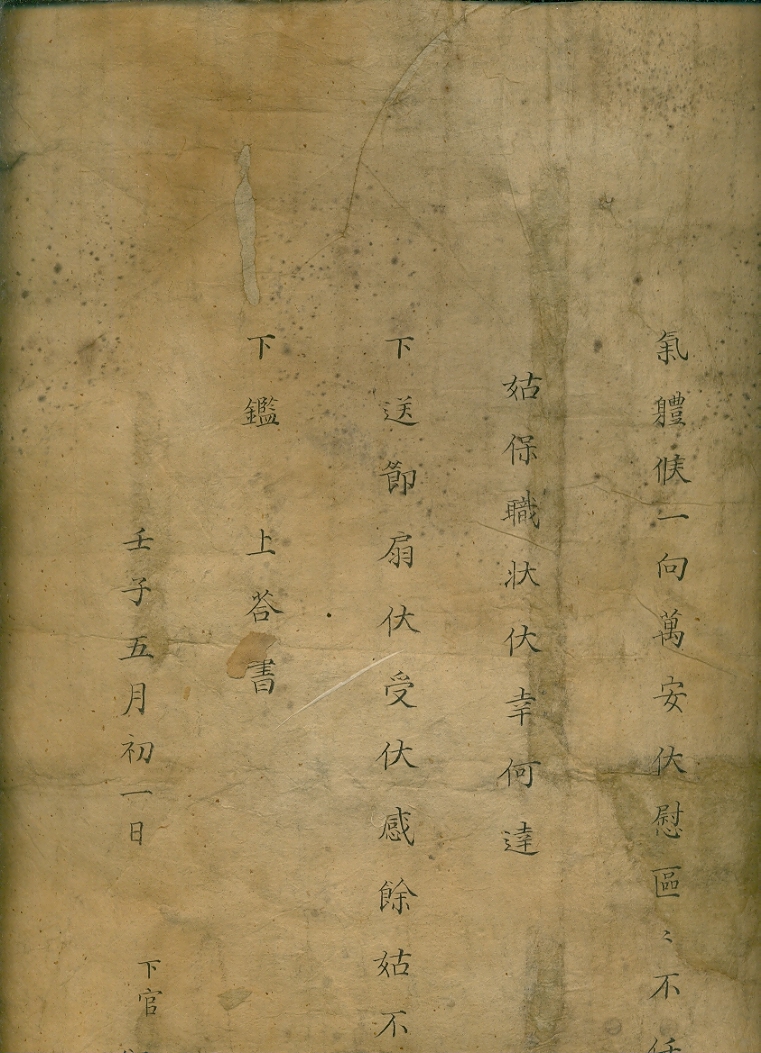 氣體候一向萬安伏慰區〻不
姑保職狀伏幸何達
下送節扇伏受伏感餘姑不
下鑑 上答書
壬子五月初一日
下官